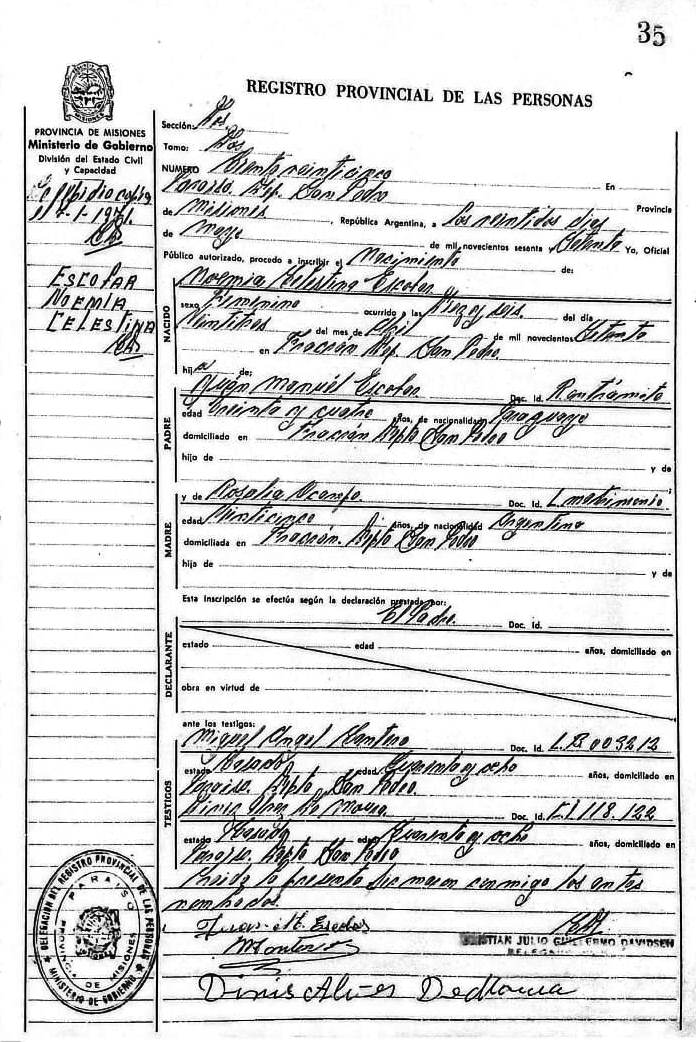 35
REGISTRO PROVINCIAL DE LAS PERSONAS
PROVINCIA DE MISIONES
Ministerio de Gobierno
División del Estado Civil
y Capacidad
el 7-1-1971.
ESCOBAR
NOEMIA
CELESTINA
Sección: Dos.
Tomo: Dos
NUMERO Treinta veinticinco En
Paraiso. Dep. San Pedro Provincia
de Misiones, República Argentina, a los veintidos dias
de Mayo de mil novecientos sesenta Setenta Yo, Oficial
Público autorizado, procedo a inscribir el Nacimiento de:
NACIDO
Noemia Celestina Escobar
sexo Femenino ocurrido a las Diez y seis. del día
Veintitres del mes de Abril de mil novecientos Setenta
en Fracrán Dep. San Pedro.
hija de:
PADRE
Juan Manuel Escobar Doc. Id. En trámite
edad Treinta y cuatro años, de nacionalidad Paraguaya
domiciliado en Fracrán Dpto San Pedro
hijo de y de
MADRE
y de Rosalia Ocampo. Doc. Id. L. matrimonio.
edad Veinticinco años, de nacionalidad Argentina
domiciliada en Fracrán. Dpto San Pedro
hijo de y de
Esta inscripción se efectúa según la declaración prestada por:
DECLARANTE
El Padre. Doc. Id.
estado edad años, domiciliado en
obra en virtud de
ante los testigos:
TESTIGOS
Miguel Angel Doc. Id. 003212
estado Casado edad Cuarenta y ocho años, domiciliado en
Paraiso. Dpto San Pedro.
Doc. Id. C.I. 118.122
estado Casado edad Cuarenta y ocho años, domiciliado en
Paraiso. Dpto San Pedro
Leida la presente firman conmigo los antes
nombrados.
Juan M. Escobar
CRISTIAN JULIO GUILLERMO DAVIDSEN
Dinis Alves
DELEGACION DEL REGISTRO PROVINCIAL DE LAS PERSONAS
MINISTERIO DE GOBIERNO
PARAISO
PROVINCIA DE MISIONES